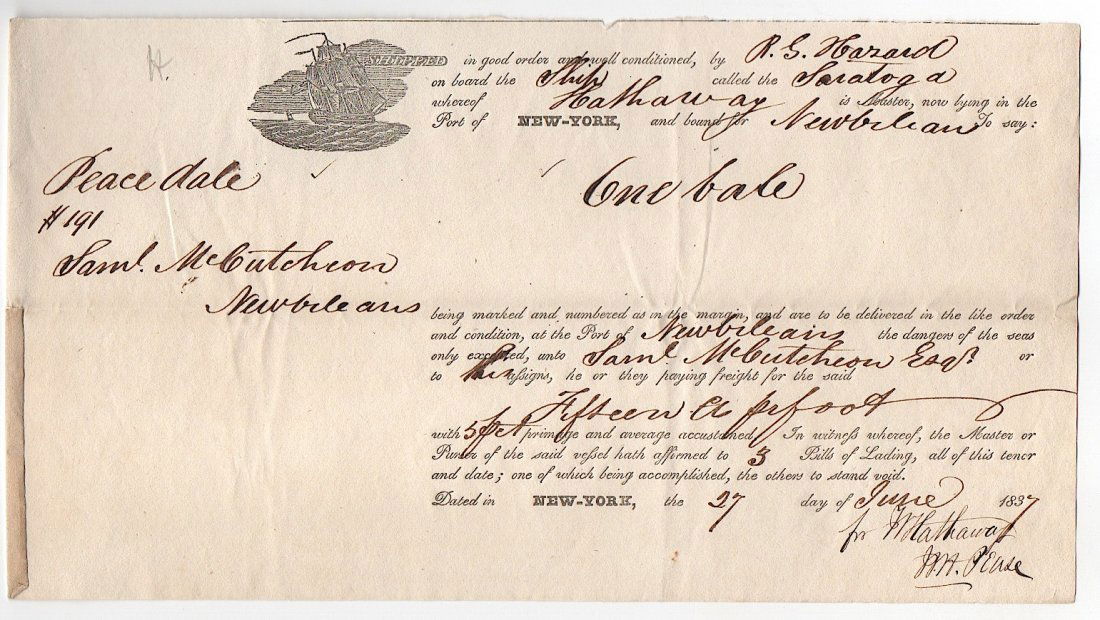 H.
SHIPPED in good order and well conditioned, by R. G. Hazard
on board the Ship called the Saratoga
whereof Hathaway is Master, now lying in the
Port of NEW-YORK, and bound for NewOrleans To say:
Peace dale
One bale
# 191
Saml. McCutcheon
NewOrleans
being marked and numbered as in the margin, and are to be delivered in the like order
and condition, at the Port of NewOrleans the dangers of the seas
only excepted, unto Saml McCutcheon Esqr. or
to his assigns, he or they paying freight for the said
Fifteen cts pr foot
with 5 pct primage and average accustomed In witness whereof, the Master or
Purser of the said vessel hath affirmed to 3 Bills of Lading, all of this tenor
and date; one of which being accomplished, the others to stand void.
Dated in NEW-YORK, the 27 day of June 1837
for W Hathaway
W.H. Pease